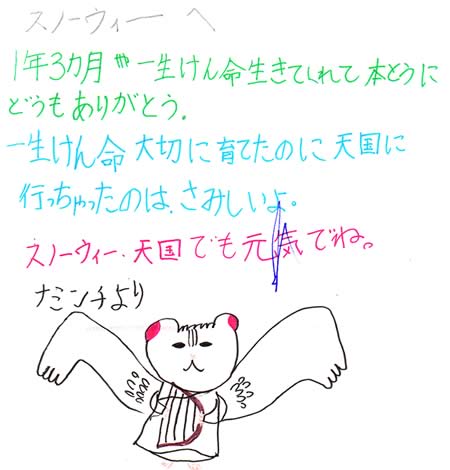 スノーウィー へ
1年3カ月や一生けん命生きてくれて本とうに
どうもありがとう.
一生けん命 大切に育てたのに天国に
行っちゃったのは、さみしいよ。
スノーウィー・天国でも元気でね。
ナミンチより